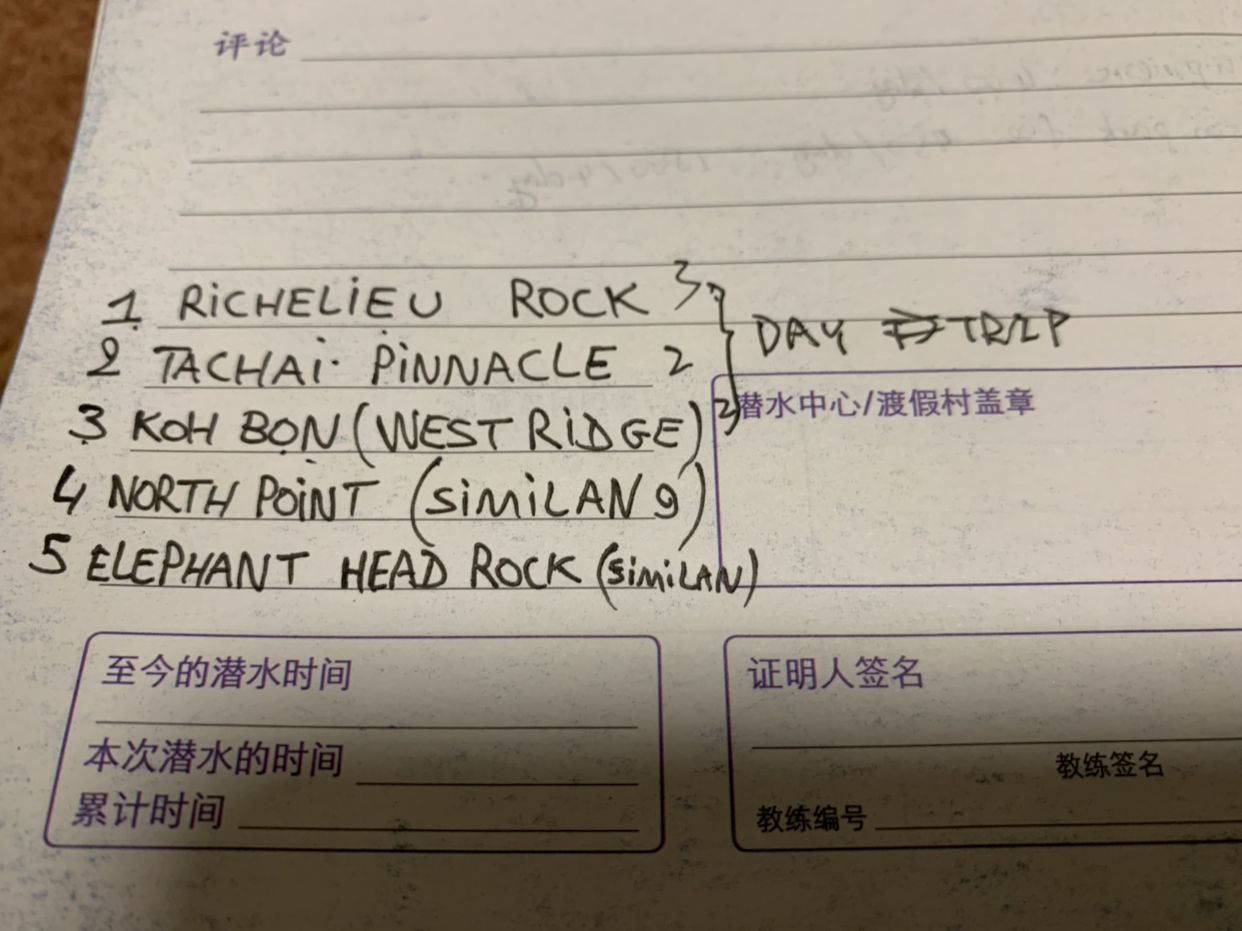 评论
1 RiCHELiEU ROCK 3 } DAY TRIP
2 TACHAi PiNNACLE 2
3 KOH BON (WEST RiDGE) 2
潜水中心/渡假村盖章
4 NORTH POiNT (SiMiLAN 9)
5 ELEPHANT HEAD ROCK (SiMiLAN)
至今的潜水时间
本次潜水的时间
累计时间
证明人签名
教练签名
教练编号